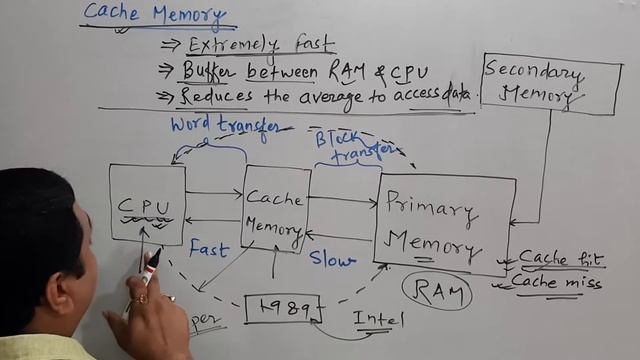 Cache Memory
⇒ Extremely fast
⇒ Buffer between RAM & CPU
⇒ Reduces the average to access data.
Secondary
Memory
Word transfer
Block
transfer
CPU
Cache
Memory
Primary
Memory
Fast
Slow
Cache hit
Cache miss
RAM
1989
Intel